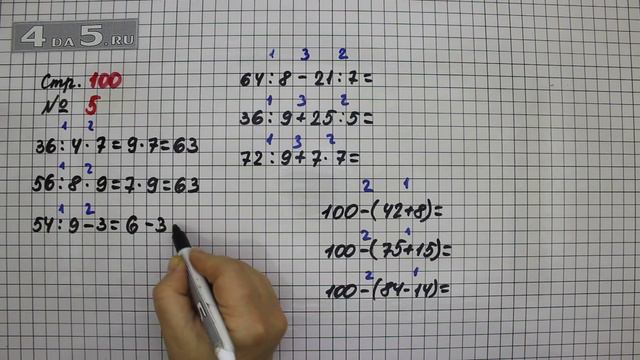 4DA5.RU
Стр. 100
№ 5
1 2
36 : 4 · 7 = 9 · 7 = 63
1 2
56 : 8 · 9 = 7 · 9 = 63
1 2
54 : 9 - 3 = 6 - 3
1 3 2
64 : 8 - 21 : 7 =
1 3 2
36 : 9 + 25 : 5 =
1 3 2
72 : 9 + 7 · 7 =
2 1
100 - (42 + 8) =
2 1
100 - (75 + 15) =
2 1
100 - (84 - 14) =